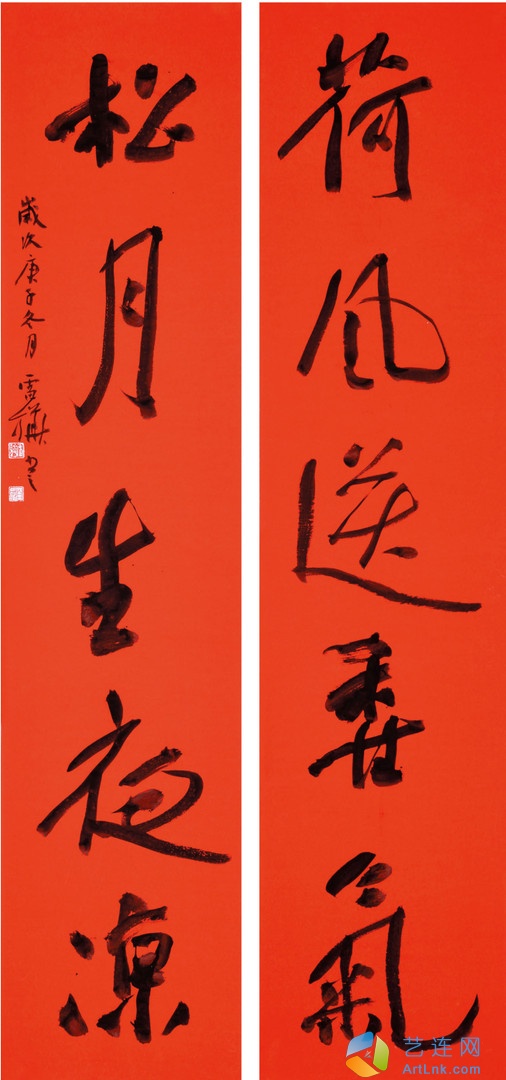 荷风送香氣
松月生夜凉
歲次庚子冬月
艺连网
ArtLnk.com